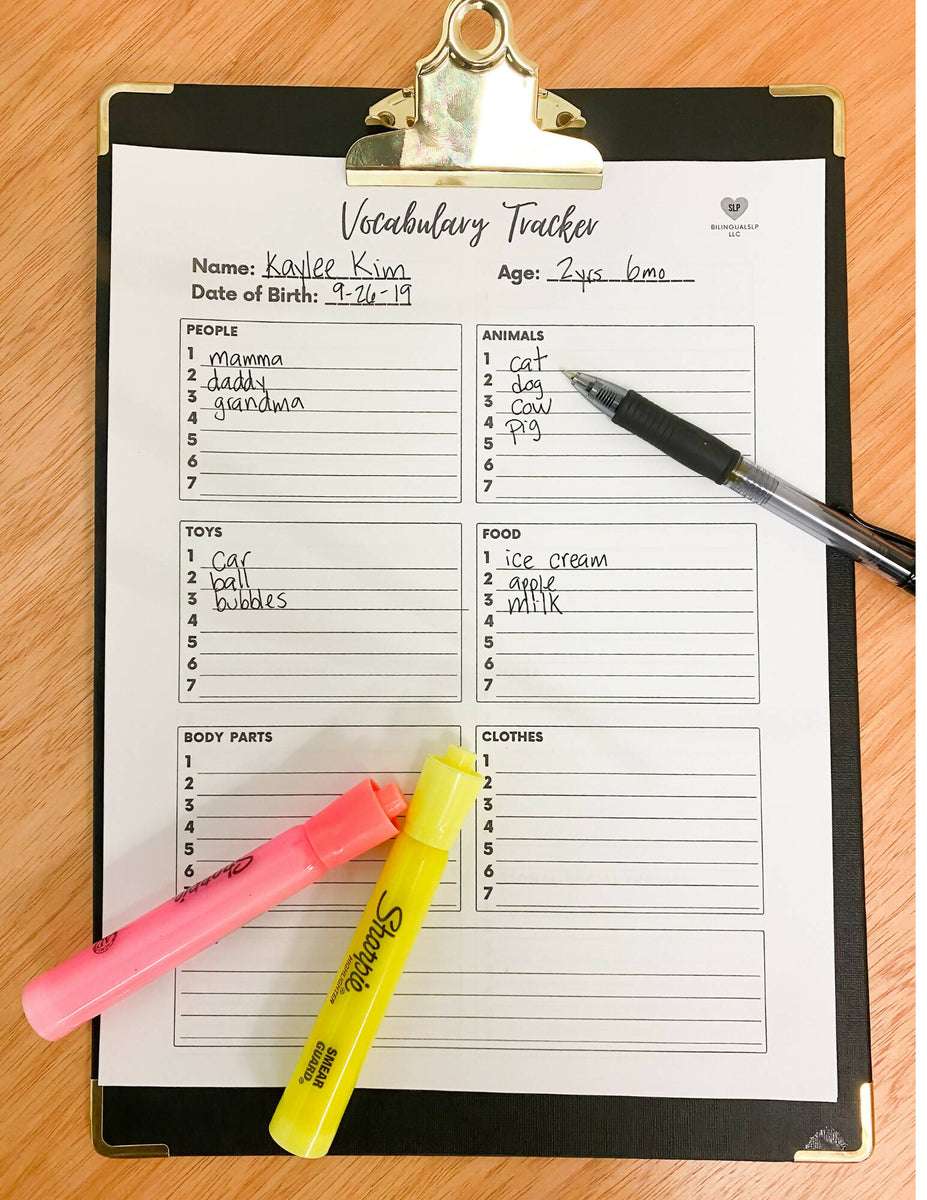 Vocabulary Tracker
SLP
BILINGUALSLP
LLC
Name: Kaylee Kim
Age: 2yrs 6mo
Date of Birth: 9-26-19
PEOPLE
1 mamma
2 daddy
3 grandma
4
5
6
7
ANIMALS
1 cat
2 dog
3 cow
4 pig
5
6
7
TOYS
1 car
2 ball
3 bubbles
4
5
6
7
FOOD
1 ice cream
2 apple
3 milk
4
5
6
7
BODY PARTS
1
2
3
4
5
6
CLOTHES
1
2
3
4
5
6
7
Sharpie
Sharpie
HIGHLIGHTER
SMEAR
GUARD